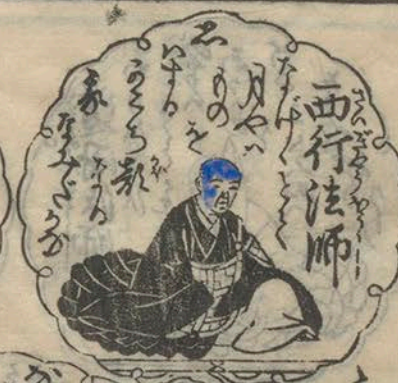 さいぎやうほうし
西行法師
なげけとて
月やハ
ものを
思
はする
かこち顔
なる
我
なみだかな